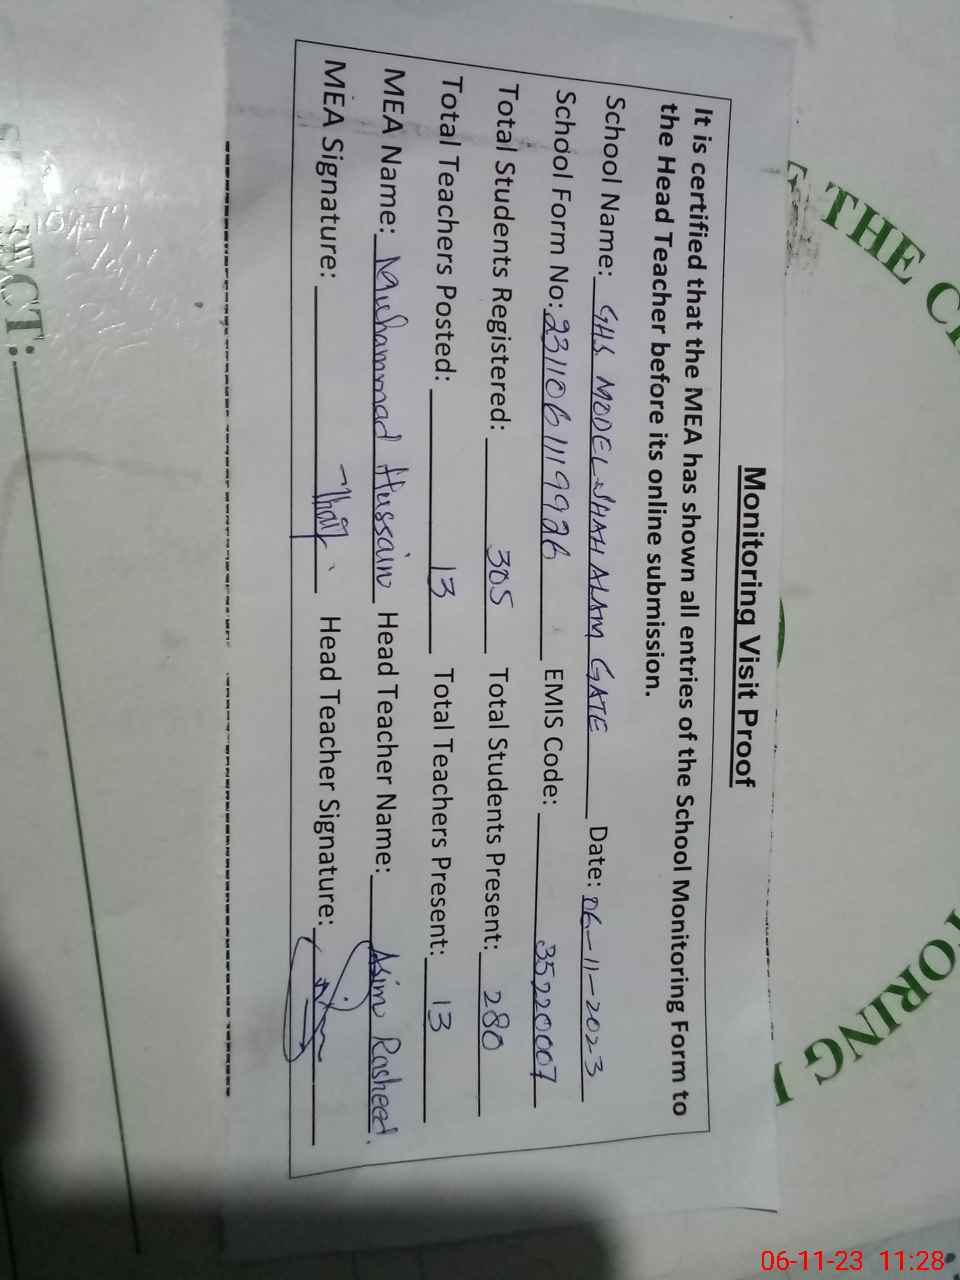 Monitoring Visit Proof
It is certified that the MEA has shown all entries of the School Monitoring Form to
the Head Teacher before its online submission.
School Name: GHS MODEL SHAH ALAM GATE Date: 06-11-2023
School Form No: 2311061119926 EMIS Code: 35220007
Total Students Registered: 305 Total Students Present: 280
Total Teachers Posted: 13 Total Teachers Present: 13
MEA Name: Muhammad Hussain Head Teacher Name: Asim Rasheed.
MEA Signature: Head Teacher Signature:
THE
ORING
ECT:
06-11-23 11:28